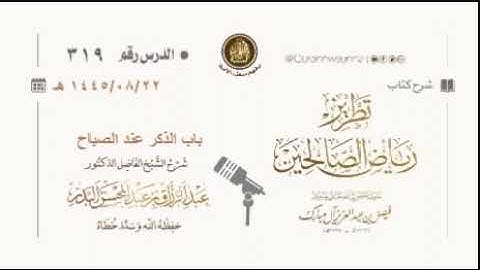 الدرس رقم ٣١٩
١٤٤٥/٠٨/٢٢ هـ
شرح كتاب
تطريز
رياض الصالحين
فيصل بن عبد العزيز آل مبارك
باب الذكر عند الصباح
شرح الشيخ الفاضل الدكتور
عبد الرزاق بن عبد المحسن البدر
حفظه الله وسدد خطاه